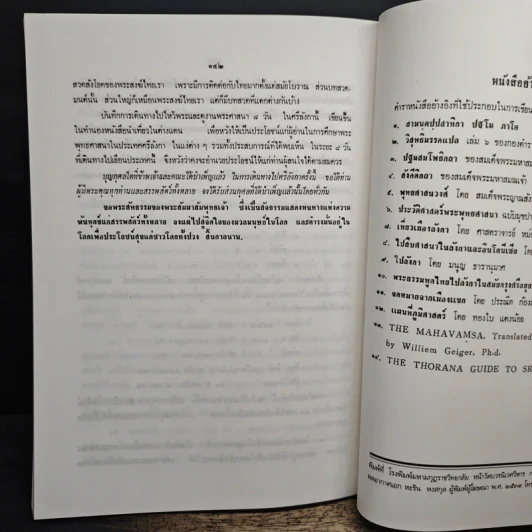 ๑๔๒
สวดสังโยคของพระสงฆ์ไทยเรา เพราะมีการติดต่อกับไทยมากตั้งแต่สมัยโบราณ ส่วนบทสวด-
มนต์นั้น ส่วนใหญ่ก็เหมือนพระสงฆ์ไทยเรา แต่ก็มีบทสวดที่แตกต่างกันบ้าง
บันทึกการเดินทางไปไหว้พระและดูงานพระศาสนา ๘ วัน ในศรีลังกานี้ เขียนขึ้น
ในทำนองหนังสือนำเที่ยวในต่างแดน เพื่อหวังให้เป็นประโยชน์แก่ผู้อ่านในการศึกษาพระ
พุทธศาสนาในประเทศศรีลังกา ในแง่ต่าง ๆ รวมทั้งประสบการณ์ที่ได้พบเห็น ในระยะ ๘ วัน
ที่เดินทางไปเยือนประเทศนี้ จึงหวังว่าคงจะอำนวยประโยชน์ให้แก่ท่านผู้สนใจได้ตามสมควร
บุญกุศลใดที่ข้าพเจ้าและคณะได้บำเพ็ญแล้ว ในการเดินทางไปศรีลังกาครั้งนี้ ขอให้ท่าน
ผู้มีพระคุณทุกท่านและสรรพสัตว์ทั้งหลาย จงได้รับส่วนกุศลที่ได้บำเพ็ญแล้วนั้นโดยทั่วกัน
ขอพระสัทธรรมของพระสัมมาสัมพุทธเจ้า ซึ่งเป็นสัจธรรมแสดงหนทางแห่งความ
พ้นทุกข์แก่สรรพสัตว์ทั้งหลาย จงแผ่ไปสู่จิตใจของมวลมนุษย์ในโลก และดำรงมั่นอยู่ใน
โลกเพื่อประโยชน์สุขแก่ชาวโลกทั้งปวง สิ้นกาลนาน.
หนังสืออ้า
ตำราหนังสืออ้างอิงที่ใช้ประกอบในการเขียน
๑. สามนฺตปาสาทิกา ปฐโม ภาโค
๒. วิสุทธิมรรคแปล เล่ม ๖ ของกองตำรา
๓. ปฐมสมโพธิกถา ของสมเด็จพระมหาสม
๔. ของสมเด็จพระมหาสมณเจ้า
๕. พุทธศาสนวงศ์ โดย สมเด็จพระญาณสัง
๖. ประวัติศาสตร์พระพุทธศาสนา ฉบับมุขปา
๗. เที่ยวเมืองลังกา โดย ศาสตราจารย์ หม่
๘. ไปสืบศาสนาในลังกาและอินโดนีเซีย โดย
๙. ไปลังกา โดย มนูญ ธารานุมาศ
๑๐. พระธรรมทูตไทยไปลังกาในสมัยกรุงศรีอยุธ
๑๑. จดหมายจากเมืองแขก โดย ประณีต ก้อง
๑๒. แผนที่ภูมิศาสตร์ โดย ทองใบ แตงน้อย
๑๓. THE MAHAVAMSA. Translated
by Williem Geiger, Ph.d.
๑๔. THE THORANA GUIDE TO SR
พิมพ์ที่ โรงพิมพ์มหามกุฏราชวิทยาลัย หน้าวัดบวรนิเวศวิหาร ก